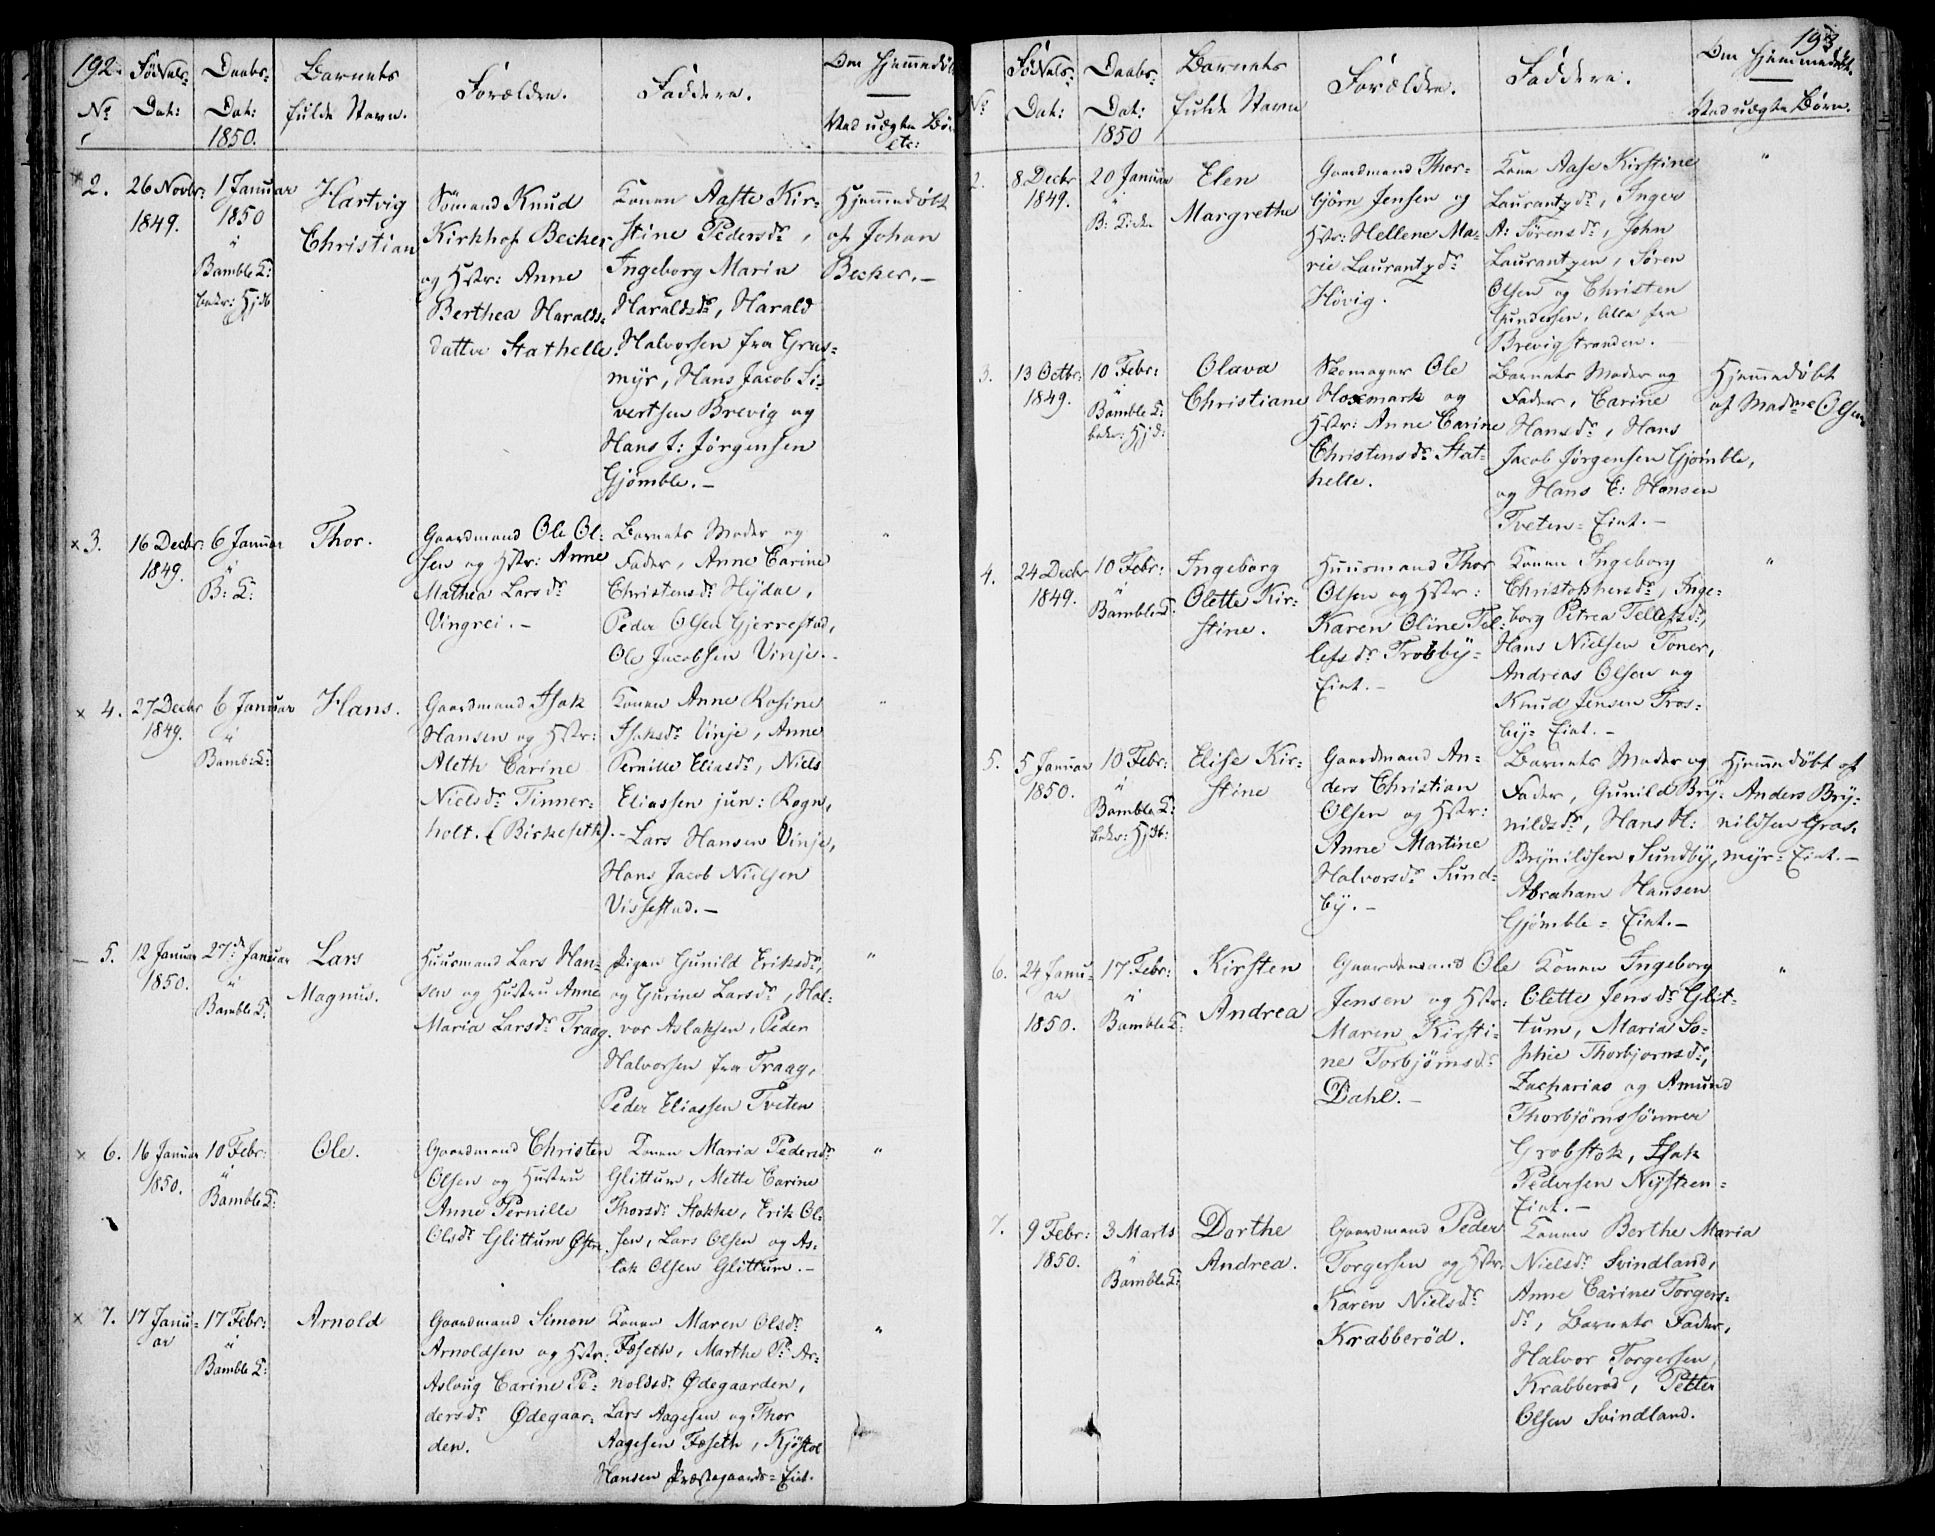 192.
Fødsels-
Daabs-
Barnets
Om Hjemmedøbt
No
Dat:
Dat:
fulde Navn.
Forældre.
Faddere.
1850.
Stad uægte Bør
etc:
2.
26 Novbr:
1849.
1 Januar
1850
i
Bamble K:
bekr: Hjdb
Hartvig
Christian
Sømand Knud
Kirkhof Becker
og Hstr: Anne
Berthea Haralds-
datter Stathelle.
Konen Aaste Kir-
stine Pedersdr,
Ingeborg Maria
Haraldsdr, Harald
Halvorsen fra Gras-
myr, Hans Jacob Si-
vertsen Brevig og
Hans J: Jørgensen
Gjømble.-
Hjemmedøbt
af Johan
Becker.-
3.
16 Decbr:
1849.
6 Januar
i
B: K:
Thor.
Gaardmand Ole Ol-
sen og Hstr: Anne
Mathea Larsdr
Vingrei.-
Barnets Moder og
Fader, Anne Carine
Christensdr Hydal,
Peder Olsen Gjerrestad,
Ole Jacobsen Vinje.-
"
4.
27 Decbr
1849.
6 Januar
i
Bamb: K:
Hans.
Gaardmand Isak
Hansen og Hstr:
Aleth Carine
Nielsdr Tinner-
holt. (Birkeseth).-
Konen Anne Rosine
Isaksdr Vinje, Anne
Pernille Eliasdr, Niels
Eliassen jun: Rogn,
Lars Hansen Vinje,
Hans Jacob Nielsen
Vissestad.-
"
5.
12 Januar
1850.
27de Januar
i
Bamble K:
Lars
Magnus.
Huusmand Lars Han-
sen og Hustru Anne
Maria Larsdr Traag.
Pigen Gunild Eriksdr,
og Gurine Larsdr, Hal-
vor Aslaksen, Peder
Halvorsen fra Traag,
Peder Eliassen Tveten
"
6.
16 Januar
1850.
10 Febr:
i
Bamble K:
Ole.
Gaardmand Christen
Olsen og Hustru
Anne Pernille
Olsdr Glittum Østre.
Konen Maria Pedersdr
Glittum, Mette Carine
Thorsdr Stokke, Erik Ol-
sen, Lars Olsen og As-
lak Olsen Glittum.-
"
7.
17 Janu-
ar
17 Febr:
i
Bamble K:
Arnold
Gaardmand Simon
Arnoldsen og Hstr:
Aslaug Carine Pe-
dersdr Ødegaar-
den.
Konen Maren Olsdr
Foseth, Marthe P: Ar-
noldsdr Ødegaarden,
Lars Aagesen og Thor
Aagesen Foseth, Kjøstol
Hansen Præstegaards-Eint.
"
193.
Fødsels-
Daabs-
Barnets
Om Hjemmedøbt.
No
Dat:
Dat:
fulde Navn
Forældre.
Faddere.
1850
Stad uægte Børn.
2.
8 Decbr
1849.
20 Januar
i
B: Kirke
Elen
Margrethe
Gaardmand Thor-
bjørn Jensen og
Hstr: Hellene Ma-
rie Laurantzdr
Høvig.
Kone Aase Kirstine
Laurantzdr, Inger
A: Sørensdr, John
Laurantzen, Søren
Olsen og Christen
Gundersen, Alle fra
Brevigstranden.-
"
3.
13 Octbr:
1849.
10 Febr:
i
Bamble K:
bekr: Hjd:
Olava
Christiane
Skomager Ole
Hoxmark og
Hstr: Anne Carine
Christensdr Stat-
helle.
Barnets Moder og
Fader, Carine
Hansdr, Hans
Jacob Jørgensen Gjømble,
og Hans C: Hansen
Tveten-Eint.-
Hjemmedøbt
af Madme Olsen
4.
24 Decbr
1849.
10 Febr:
i
Bamble K:
Ingeborg
Olette Kir-
stine.
Huusmand Thor
Olsen og Hstr:
Karen Oline Tel-
lefsdr Trosby-
Eint.-
Konen Ingeborg
Christophersdr, Inge-
borg Petrea Tellefsdr,
Hans Nielsen Toner,
Andreas Olsen og
Knud Jensen Tros-
by-Eint.-
"
5.
5 Januar
1850.
10 Febr:
i
Bamble K:
bekr: Hjdb:
Elise Kir-
stine
Gaardmand An-
ders Christian
Olsen og Hstr:
Anne Martine
Halvorsdr Sund-
by.-
Barnets Moder og
Fader, Gunild Bry-
nildsdr, Hans H:
Brynildsen Sundby,
Abraham Hansen
Gjømble-Eint.-
Hjemmedøbt af
Anders Bry-
nildsen Gras-
myr-Eint.-
6.
24 Janu-
ar
1850.
17 Febr:
i
Bamble K:
Kirsten
Andrea
Gaardmand Ole
Jensen og Hstr:
Maren Kirsti-
ne Torbjørnsdr
Dahl.-
Konen Ingeborg
Olette Jensdr Glit-
tum, Maria So-
phie Thorbjørnsdr,
Zacharias og Amund
Thorbjørnssønner
Grobstok, Isak
Pedersen Nysteen-
Eint.-
"
7.
9 Febr:
1850.
3 Marts
i
Bamble K:
Dorthe
Andrea.
Gaardmand Peder
Torgersen og Hstr:
Karen Nielsdr
Krabberød.
Konen Berthe Maria
Nielsdr Svindland,
Anne Carine Torgers-
dr, Barnets Fader,
Halvor Torgersen
Krabberød, Petter
Olsen Svindland.